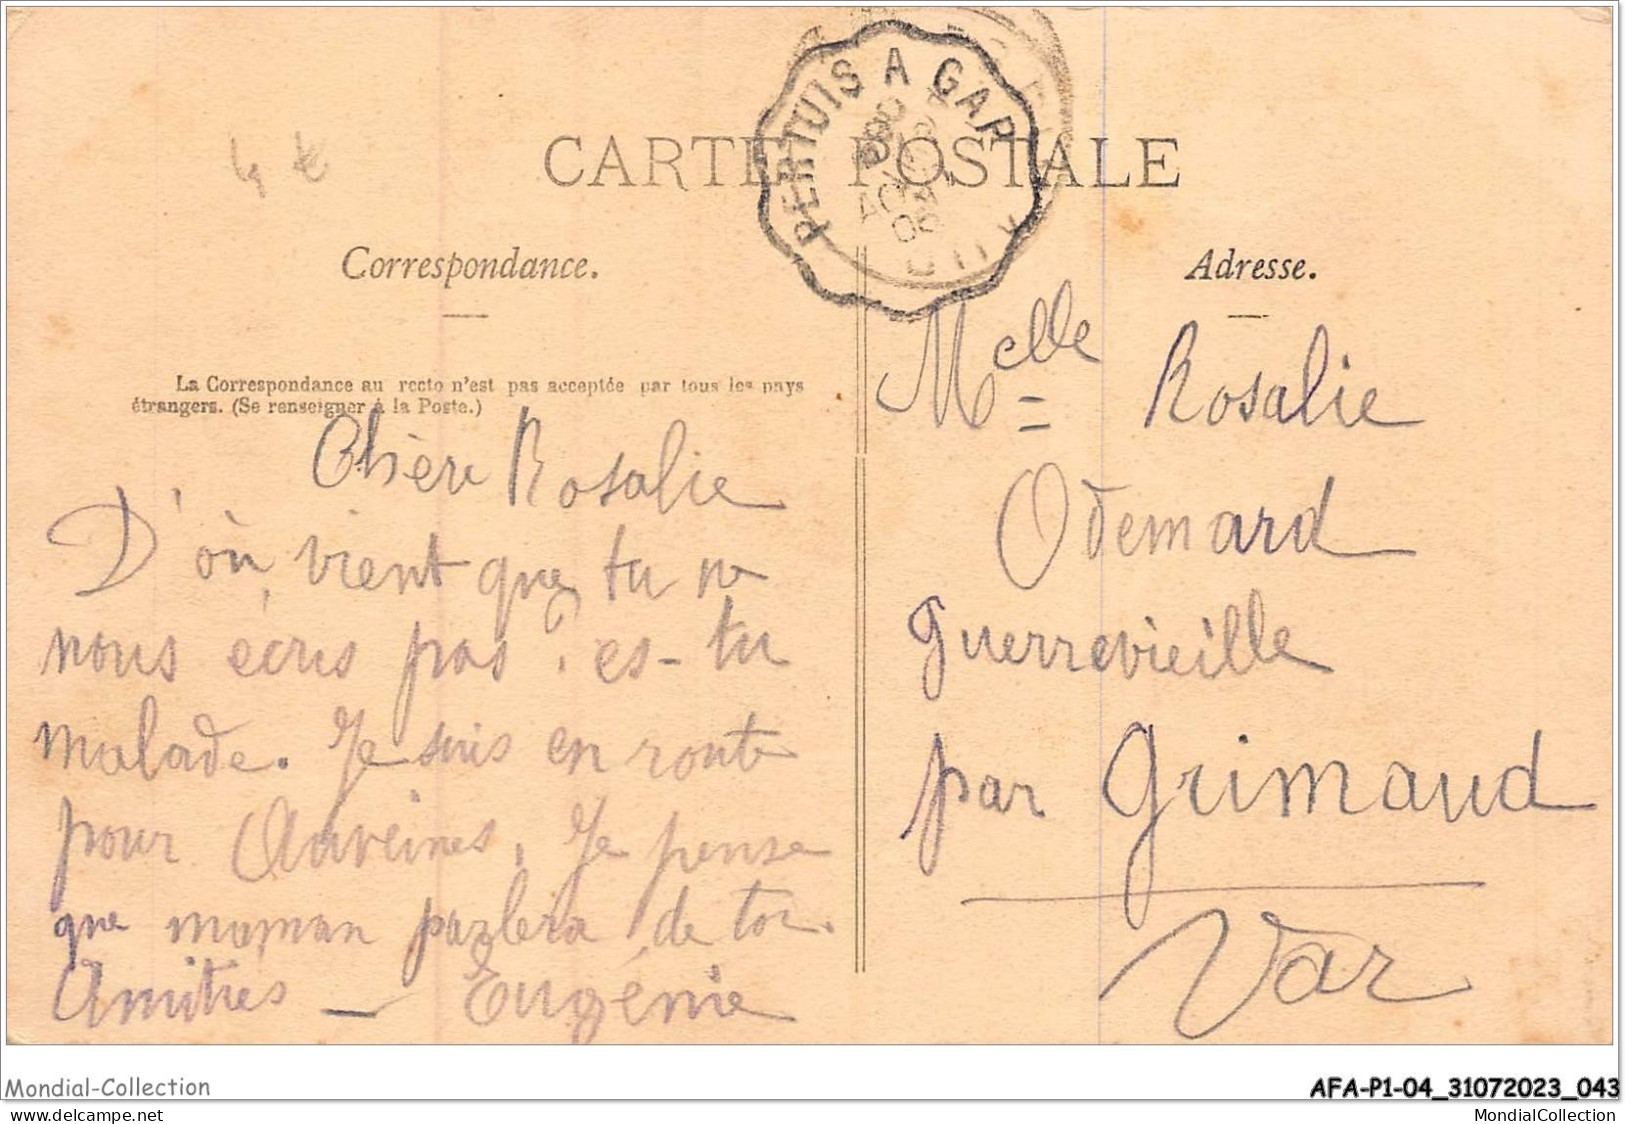 PERTUIS A GAP
CARTE POSTALE
4 €
Correspondance.
La Correspondance au recto n'est pas acceptée par tous les pays
étrangers. (Se renseigner à la Poste.)
Chère Rosalie
D'où vient que tu ne
nous écris pas. es-tu
malade. Je suis en route
pour Je pense
que maman parlera de toi.
Amitiés — Eugénie
Adresse.
Melle Rosalie
Odemard
Guerrevieille
par Grimaud
Var
Mondial-Collection
AFA-P1-04_31072023_043
delcampe.net
MondialCollection